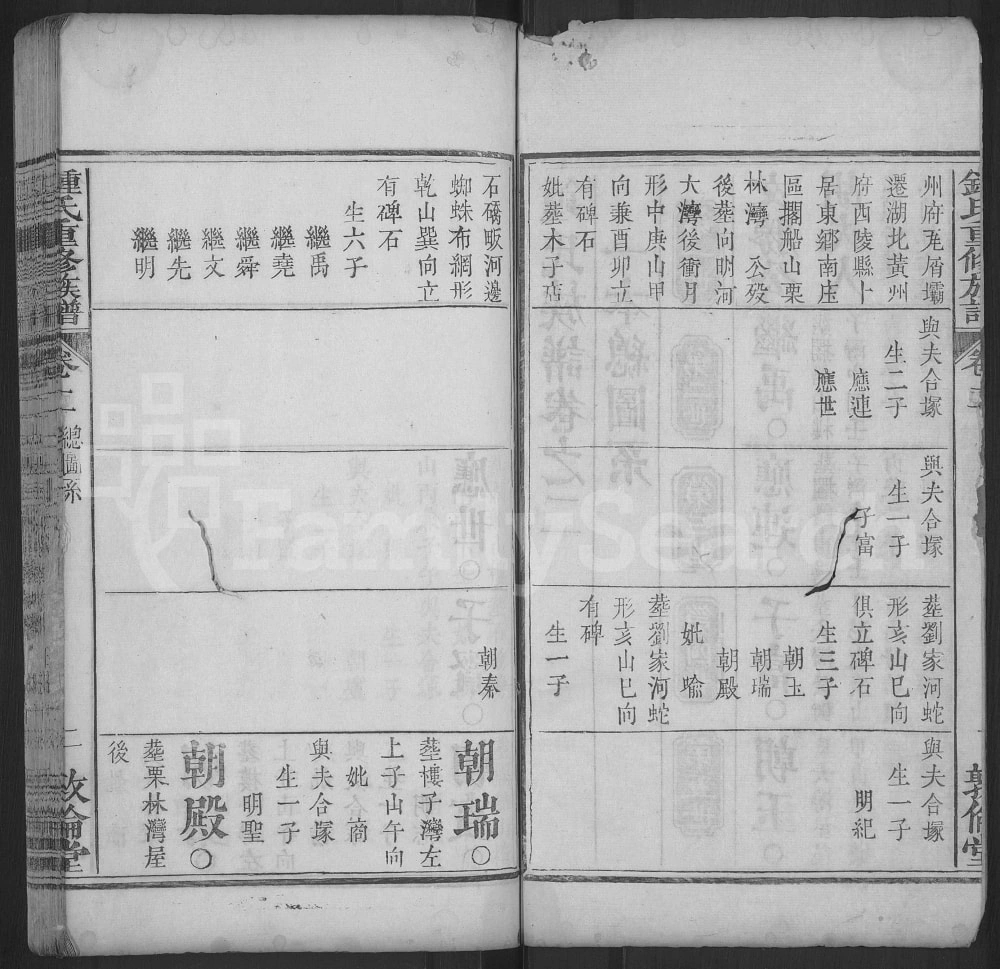 州府瓦屑壩
遷湖北黃州
府西陵縣卜
居東鄉南庄
區擱船山栗
林灣 公殁
後塟向明河
大灣後衝月
形中庚山甲
向兼酉卯立
有碑石
妣塟木子店
與夫合塚
生二子
應連
應世
與夫合塚
生一子
子富
塟劉家河蛇
形亥山巳向
俱立碑石
生三子
朝玉
朝瑞
朝殿
妣喻
塟劉家河蛇
形亥山巳向
有碑
生一子
與夫合塚
生一子
明紀
敦倫堂
石磆畈河邊
蜘蛛布網形
乾山巽向立
有碑石
生六子
繼禹
繼堯
繼舜
繼文
繼先
繼明
朝秦
朝瑞○
塟樓子灣左
上子山午向
妣商
與夫合塚
生一子
明聖
朝殿○
塟栗林灣屋
後
鍾氏重修族譜
卷十二
總圖系
二
敦倫堂
FamilySearch